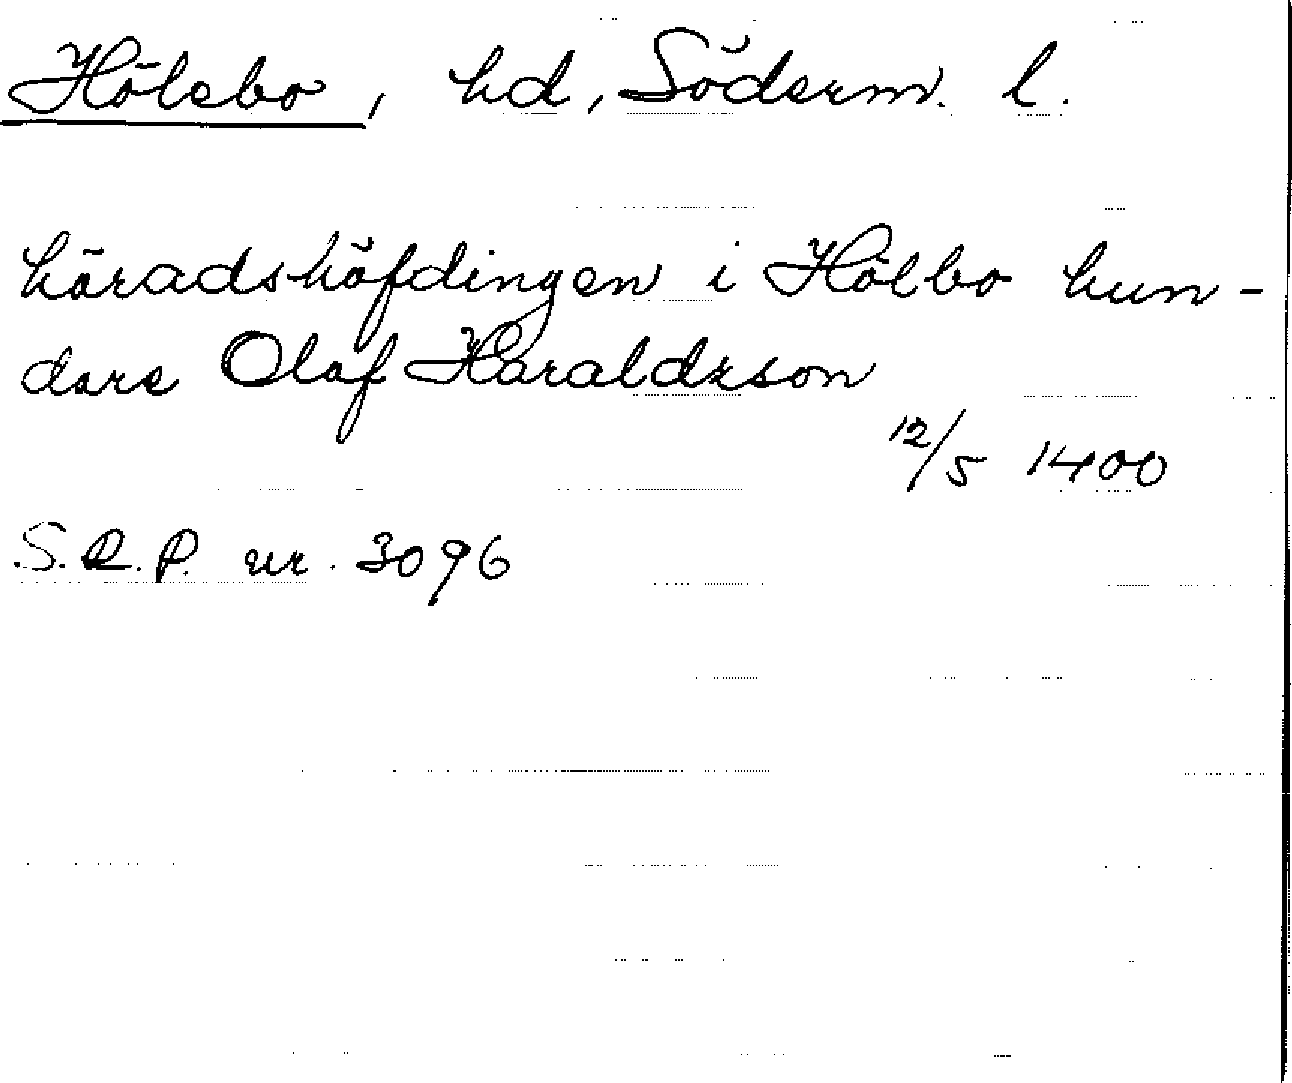 Hölebo, hd, Söderm. l.
häradshöfdingen i Hölbo hun-
dare Olaf Haraldsson
12/5 1400
S.R.P. nr. 3096